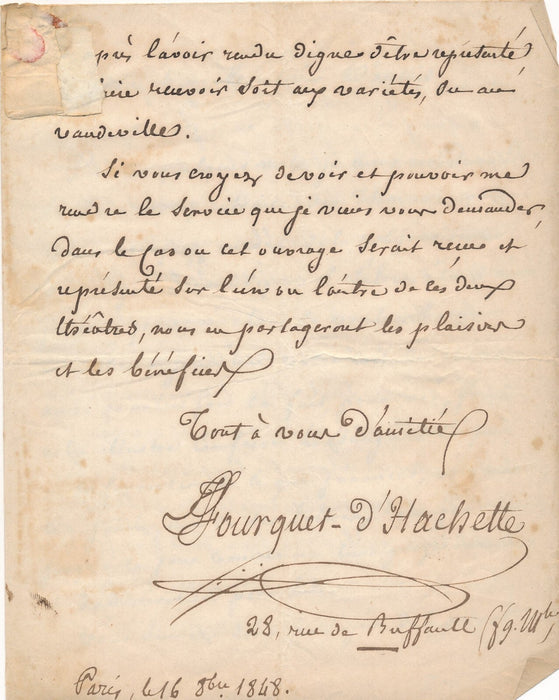 près l'avoir rendu digne d'être représenté
recevoir soit aux variétés, ou au
vaudeville.
Si vous croyez devoir et pouvoir me
rendre le service que je viens vous demander,
dans le cas ou cet ouvrage serait reçu et
représenté sur l'un ou l'autre de ces deux
théâtres, nous en partageront les plaisirs
et les bénéfices
Tout à vous d'amitié
Fourquet-d'Hachette
28, rue de Buffault (fg. M
Paris, le 16 8bre 1848.